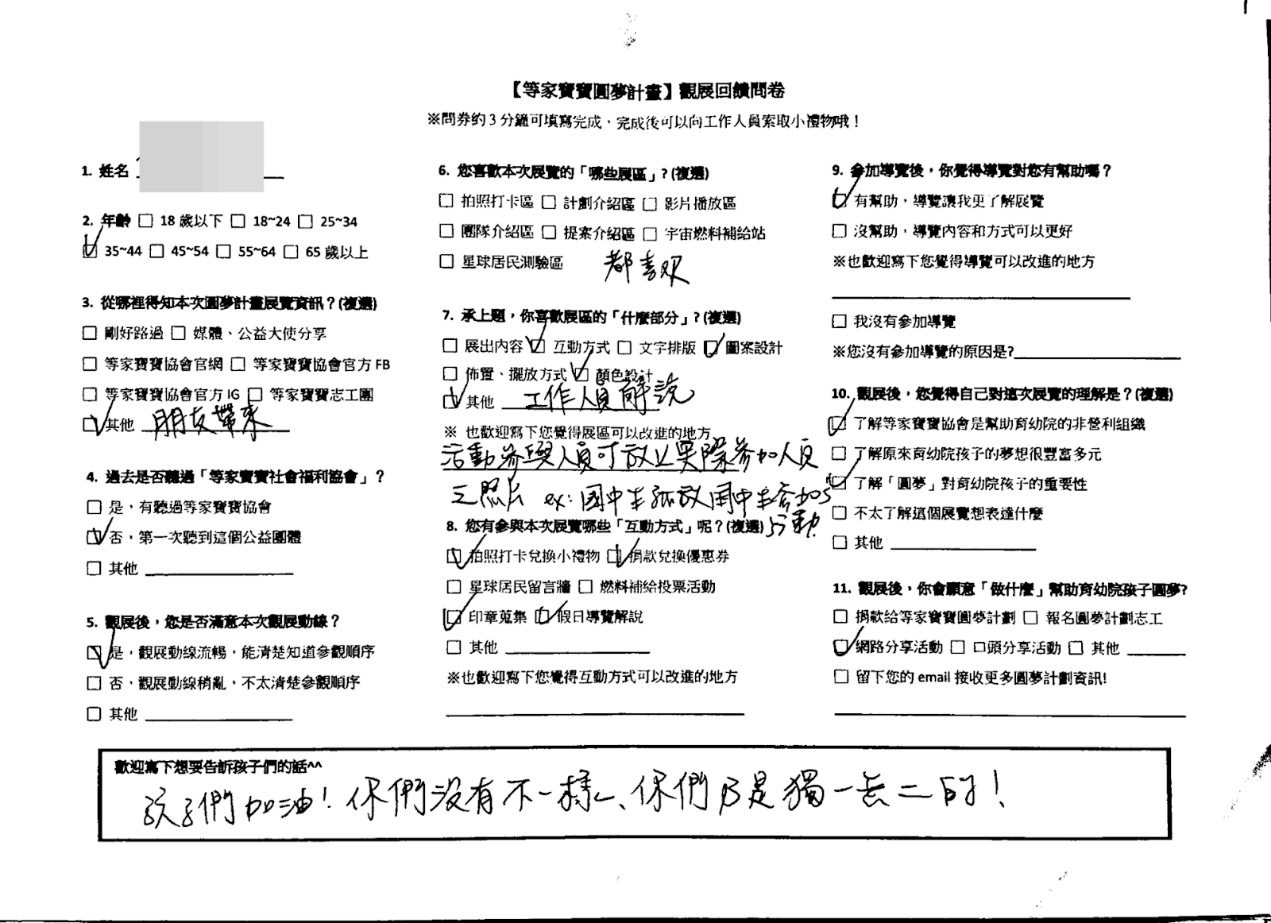 【等家寶寶圓夢計畫】觀展回饋問卷
※問券約3分鐘可填寫完成，完成後可以向工作人員索取小禮物哦！
1. 姓名
2. 年齡 □ 18 歲以下 □ 18~24 □ 25~34
☑ 35~44 □ 45~54 □ 55~64 □ 65 歲以上
3. 從哪裡得知本次圓夢計畫展覽資訊？(複選)
□ 剛好路過 □ 媒體、公益大使分享
□ 等家寶寶協會官網 □ 等家寶寶協會官方 FB
□ 等家寶寶協會官方 IG □ 等家寶寶志工團
☑ 其他 朋友帶來
4. 過去是否聽過「等家寶寶社會福利協會」？
□ 是，有聽過等家寶寶協會
☑ 否，第一次聽到這個公益團體
□ 其他
5. 觀展後，您是否滿意本次觀展動線？
☑ 是，觀展動線流暢，能清楚知道參觀順序
□ 否，觀展動線稍亂，不太清楚參觀順序
□ 其他
6. 您喜歡本次展覽的「哪些展區」？(複選)
□ 拍照打卡區 □ 計劃介紹區 □ 影片播放區
□ 團隊介紹區 □ 提案介紹區 □ 宇宙燃料補給站
□ 星球居民測驗區 都喜欢
7. 承上題，你喜歡展區的「什麼部分」？(複選)
□ 展出內容 ☑ 互動方式 □ 文字排版 ☑ 圖案設計
□ 佈置、擺放方式 ☑ 顏色設計
☑ 其他 工作人員解說
※ 也歡迎寫下您覺得展區可以改進的地方
活動參與人員可放上實際參加人員
之照片 ex: 國中生 放國中生參加
活動
8. 您有參與本次展覽哪些「互動方式」呢？(複選)
☑ 拍照打卡兌換小禮物 ☑ 捐款兌換優惠券
□ 星球居民留言牆 □ 燃料補給投票活動
☑ 印章蒐集 ☑ 假日導覽解說
□ 其他
※也歡迎寫下您覺得互動方式可以改進的地方
9. 參加導覽後，你覺得導覽對您有幫助嗎？
☑ 有幫助，導覽讓我更了解展覽
□ 沒幫助，導覽內容和方式可以更好
※也歡迎寫下您覺得導覽可以改進的地方
□ 我沒有參加導覽
※您沒有參加導覽的原因是?
10. 觀展後，您覺得自己對這次展覽的理解是？(複選)
☑ 了解等家寶寶協會是幫助育幼院的非營利組織
☑ 了解原來育幼院孩子的夢想很豐富多元
☑ 了解「圓夢」對育幼院孩子的重要性
□ 不太了解這個展覽想表達什麼
□ 其他
11. 觀展後，你會願意「做什麼」幫助育幼院孩子圓夢?
□ 捐款給等家寶寶圓夢計劃 □ 報名圓夢計劃志工
☑ 網路分享活動 □ 口頭分享活動 □ 其他
□ 留下您的 email 接收更多圓夢計劃資訊!
歡迎寫下想要告訴孩子們的話^^
孩子們加油！你們沒有不一樣、你們乃是獨一無二的！